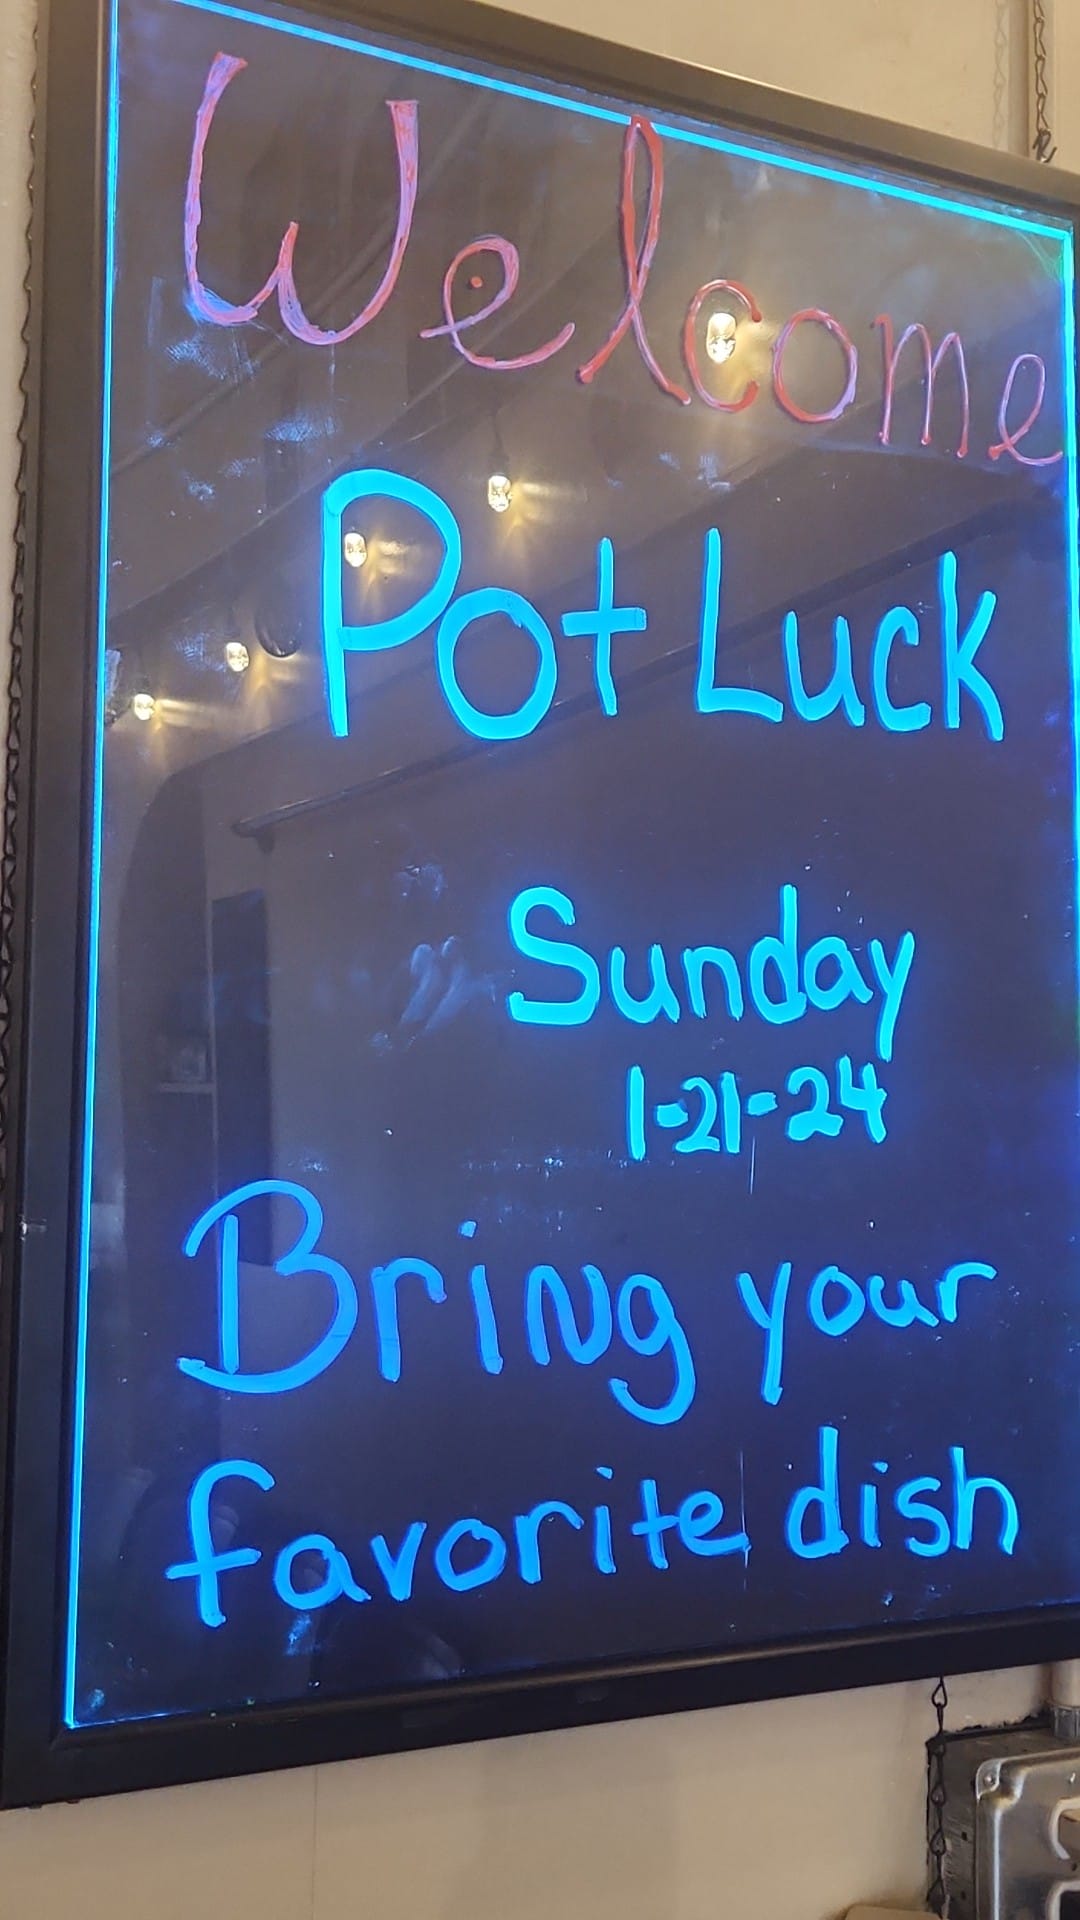 Welcome
Pot Luck
Sunday
1-21-24
Bring your
favorite dish